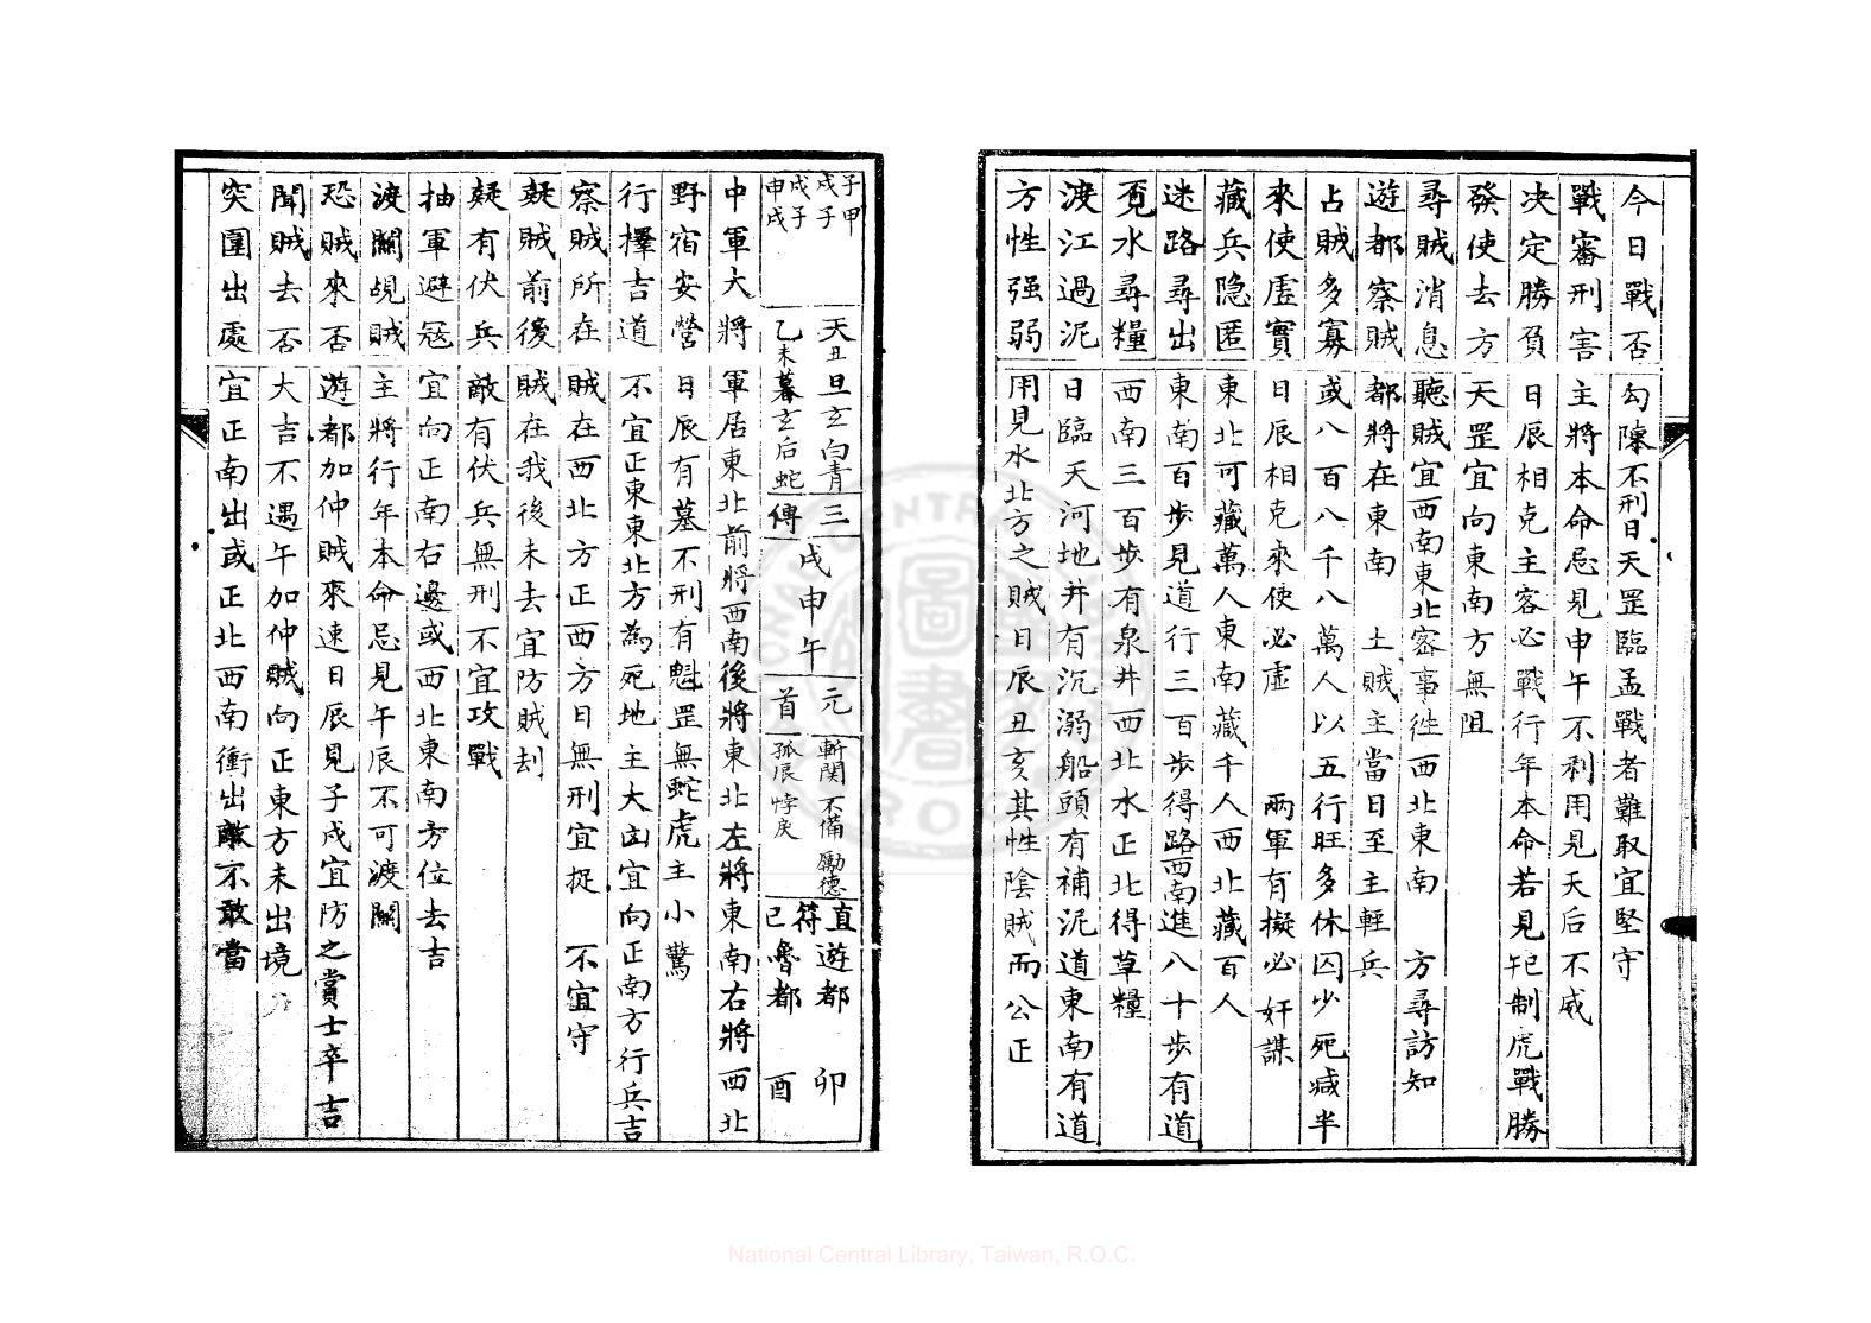 今日戰否 勾陳不刑日天罡臨孟戰者難取宜堅守
戰審刑害 主將本命忌見申午不利用見天后不威
決定勝負 日辰相克主客必戰行年本命若見𥘅制虎戰勝
發使去方 天罡宜向東南方無阻
尋賊消息 聽賊宜西南東北密事徃西北東南 方尋訪知
遊都察賊 都將在東南 土賊主當日至主輕兵
占賊多寡 或八百八千八萬人以五行旺多休囚少死減半
來使虛實 日辰相克來使必虛 兩軍有擬必奸謀
藏兵隐匿 東北可藏萬人東南藏千人西北藏百人
迷路尋出 東南百步見道行三百步得路西南進八十步有道
覓水尋糧 西南三百步有泉井西北水正北得草糧
渡江過泥 日臨天河地井有沉溺船頭有補泥道東南有道
方性强弱 用見水北方之賊日辰丑亥其性陰賊而公正
子甲
戌子
戌子
申戌
天丑旦玄白青
乙未暮玄后蛇
三傳
戌申午
元首
斬関 不備 勵德
孤辰 悖戾
直符巳
遊都 卯
魯都 酉
中軍大將 軍居東北前將西南後將東北左將東南右將西北
野宿安營 日辰有墓不刑有魁罡無蛇虎主小驚
行擇吉道 不宜正東東北方為死地主大凶宜向正南方行兵吉
察賊所在 賊在西北方正西方日無刑宜捉 不宜守
疑賊前後 賊在我後未去宜防賊刦
疑有伏兵 敵有伏兵無刑不宜攻戰
抽軍避冦 宜向正南右邊或西北東南方位去吉
渡關覘賊 主將行年本命忌見午辰不可渡關
恐賊來否 遊都加仲賊來速日辰見子戌宜防之賞士卒吉
聞賊去否 大吉不遇午加仲賊向正東方未出境
突圍出處 宜正南出或正北西南衝出敵不敢當
National Central Library, Taiwan, R.O.C.